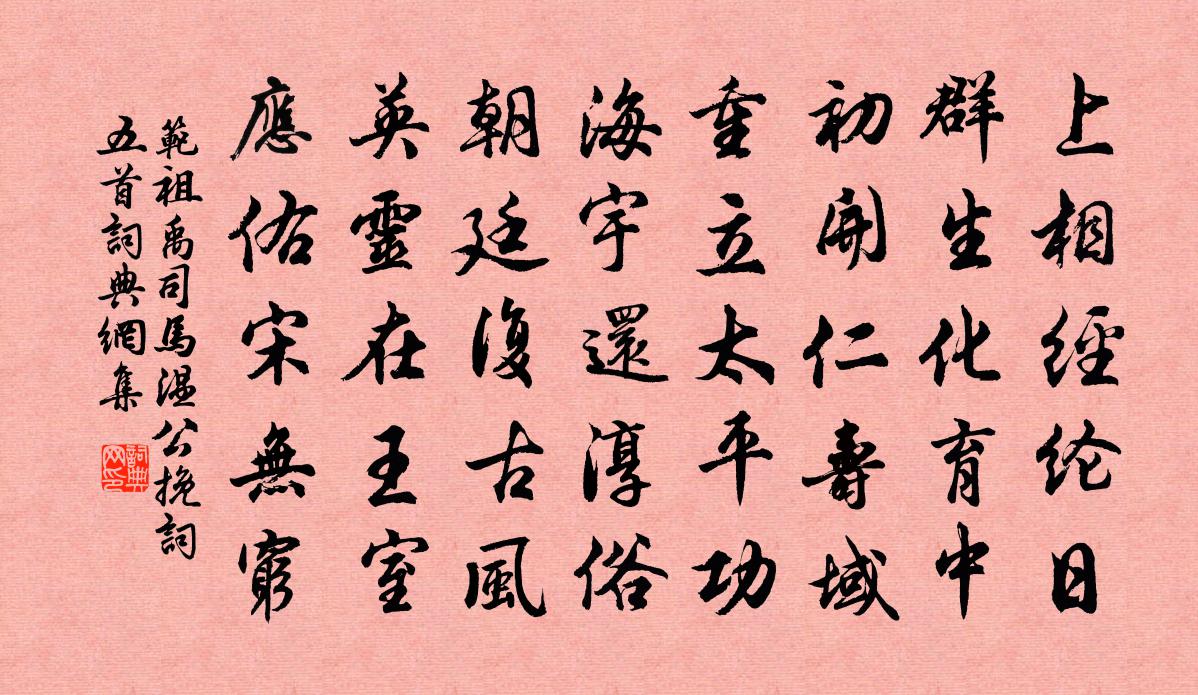 上相經纶日
群生化育中
初開仁壽域
重立太平功
海宇還淳俗
朝廷復古風
英靈在王室
應佑宋無窮
範祖禹司馬温公挽詞
五首詞典網集
詞典网印